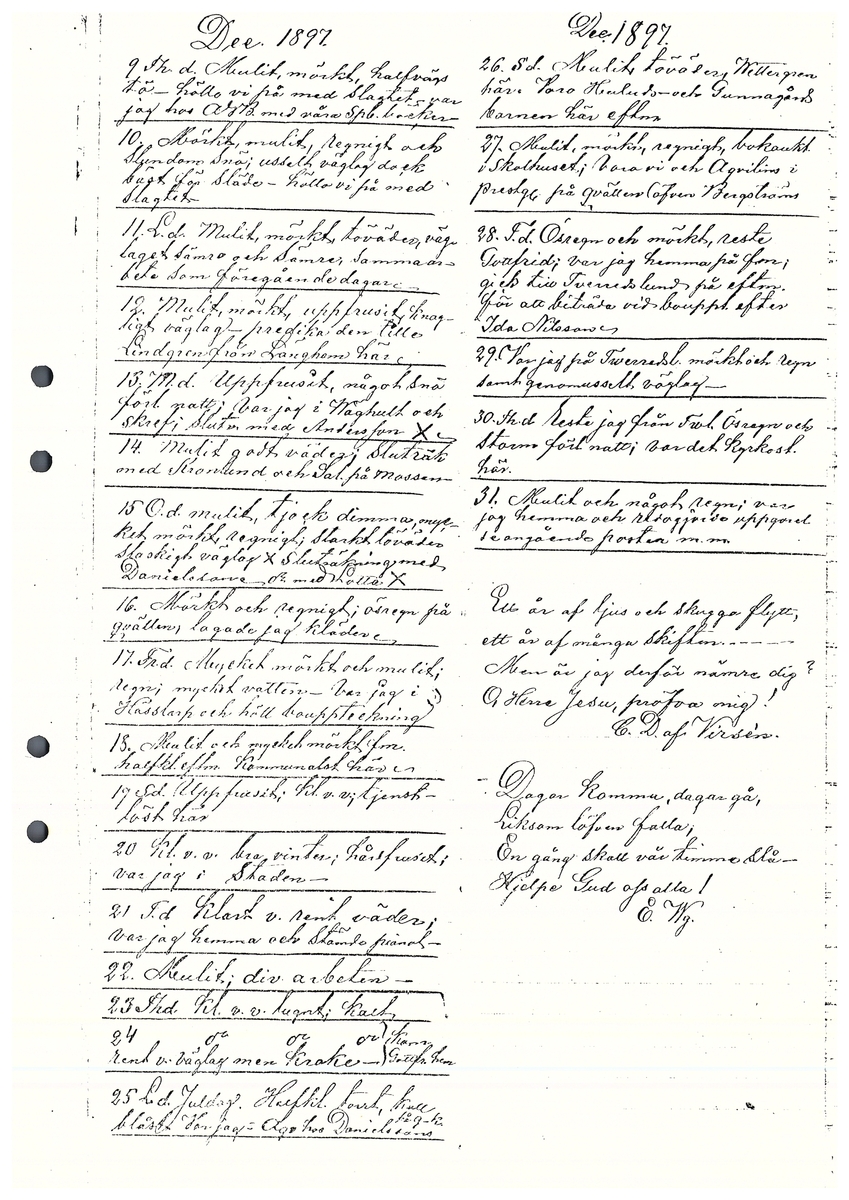 Dec. 1897.
9 Th. d. Mulit, mörkt, halfvägs
tö – höllo vi på med slagtet; var
jag hos med våra Spb. böcker
10. Mörkt, mulit, regnigt och
stundom snö; usselt väglag dock
bäst för släde – höllo vi på med
slagtet
11. L. d. Mulit, mörkt, töväder, väg-
laget sämre och sämre, samma ar-
bete som föregående dagar
12. Mulit, mörkt, uppfruset knag-
ligt väglag – predikade
Lindgren från Länghem här
13. M. d. Uppfruset, något snö
förl. natt; var jag i Häghult och
skref; slutv. med Andersson X
14. Mulit godt väder; sluträk.
med Kronlund och Sal. på Mossen
15 O. d. mulit, tjock dimma, myc-
ket mörkt, regnigt; starkt töväder
slaskigt väglag X Sluträkning med
Danielssons do med Lotta X
16. Mörkt och regnigt; ösregn på
qvällen, lagade jag kläder
17. Frd. Mycket mörkt och mulit;
regn; mycket vatten – Var jag i
Hässlarp och höll bouppteckning
18. Mulit och mycket mörkt fm.
halfkl. eftm. Kommunalst. här
19 Sd. Uppfruset; kl. v. v; tjenst-
löst här
20 Kl. v. v. bra vinter; hårdfruset;
var jag i Staden –
21 T. d Klart v. rent väder;
var jag hemma och stämde pianot –
22. Mulit; div. arbeten –
23 Thd Kl. v. v. lugnt; kallt
24 do do do Kom
rent v. väglag men krake – Gottfr. hem
25 L. d. Juldag. Halfkl. torrt, kall
blåst Var jag – Ago hos Danielssons
Dec. 1897.
26. Sd. Mulit, töväder, Wettergren
här. Voro Hiulids- och Gunnagårds
barnen här eftm
27. Mulit, mörkt, regnigt, bokaukt.
i Skolhuset; Voro vi och Agrilins i
prestg. på qvällen (äfven Bergströms
28. T. d. Ösregn och mörkt, reste
Gottfrid; var jag hemma på fm;
gick till Tverredslund på eftm.
för att biträda vid bouppt. efter
Ida Nilsson
29. Var jag på Twerredsl. mörkt och regn
samt genomusselt väglag –
30. Th d Reste jag från Twl. Ösregn och
storm förl. natt; var det Kyrkost.
här.
31. Mulit och något regn; var
jag hemma och
angående posten m. m
Ett år af ljus och skugga flytt,
ett år af många skiften. – – – –
Men är jag derför närmre dig?
O, Herre Jesu, pröfva mig!
C. D. af Virsén.
Dagar komma, dagar gå,
Liksom löfven falla;
En gång skall vår timme slå –
Hjelpe Gud oss alla!
E. Wg.